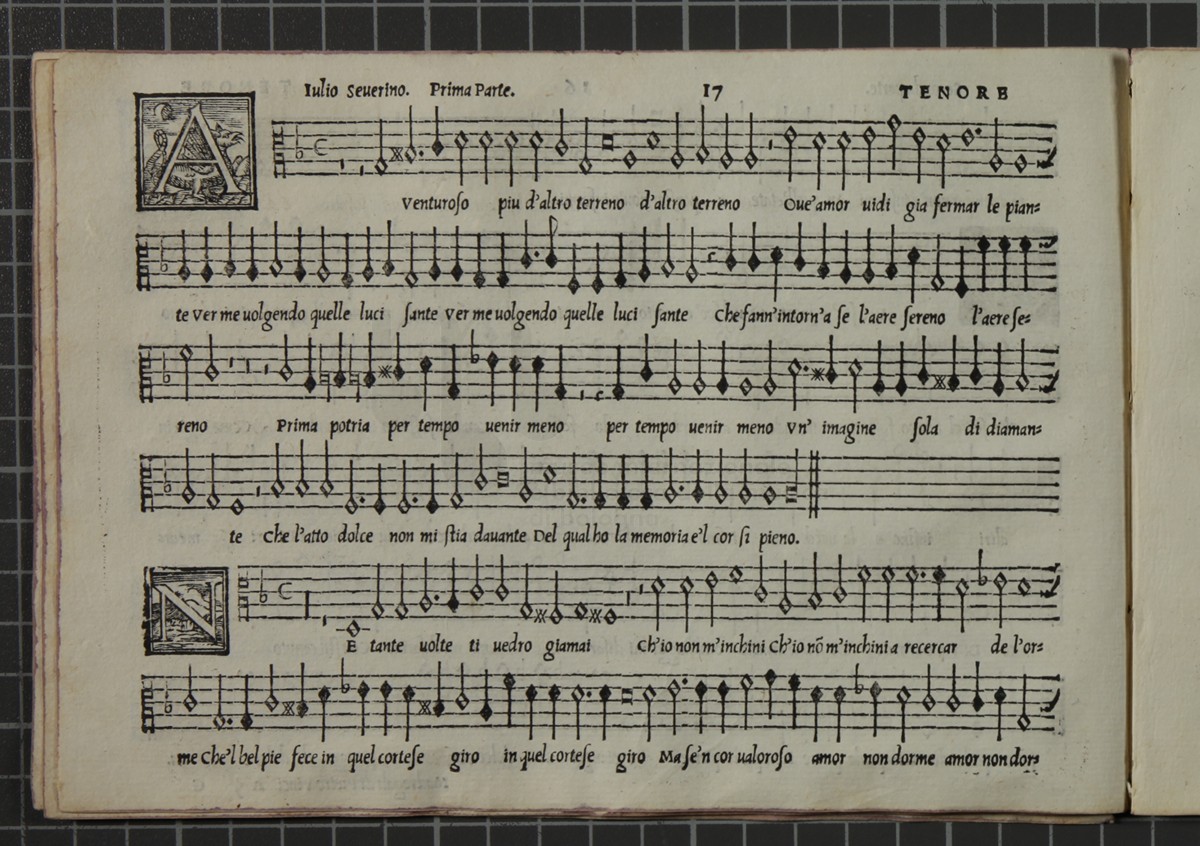 Iulio Seuerino. Prima Parte. 17 TENORE
A
Venturoso piu d'altro terreno d'altro terreno Oue'amor uidi gia fermar le pian=
te Ver me uolgendo quelle luci sante Ver me uolgendo quelle luci sante Che fann'intorn'a se l'aere sereno l'aere se=
reno Prima potria per tempo uenir meno per tempo uenir meno Vn' imagine sola di diaman=
te Che l'atto dolce non mi stia dauante Del qual ho la memoria e'l cor si pieno.
N
E tante uolte ti uedro giamai Ch'io non m'inchini Ch'io nõ m'inchini a recercar de l'or=
me Che'l bel pie fece in quel cortese giro in quel cortese giro Ma se'n cor ualoroso amor non dorme amor non dor=